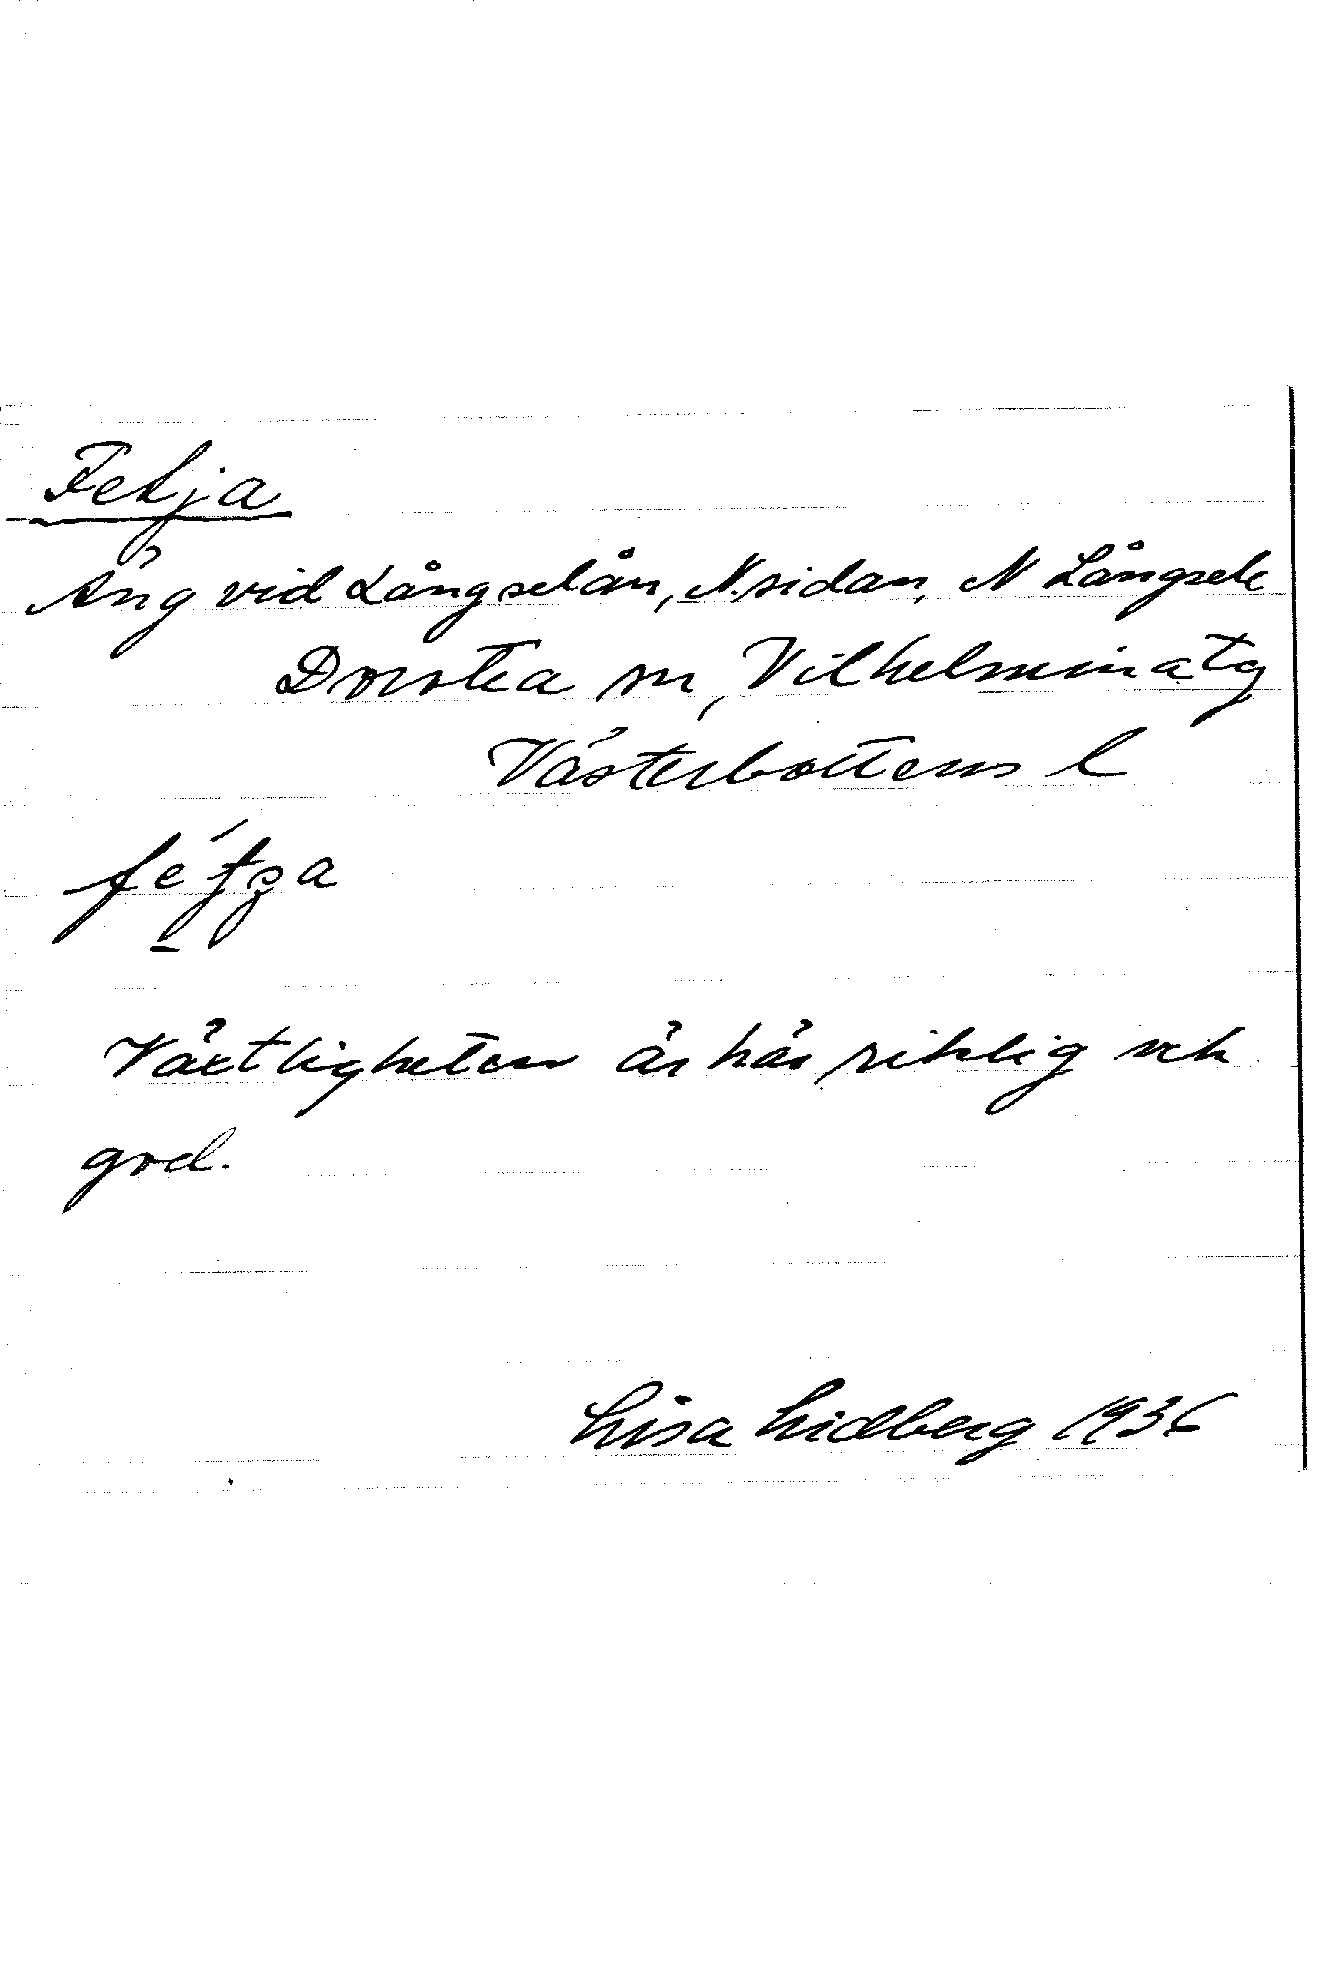 Fetja
Äng vid Långselån, N.sidan, N Långsele
Dorotea sn, Vilhelmina tg
Västerbottens l
Växtligheten är här riklig och
god.
Lisa Lidberg 1936